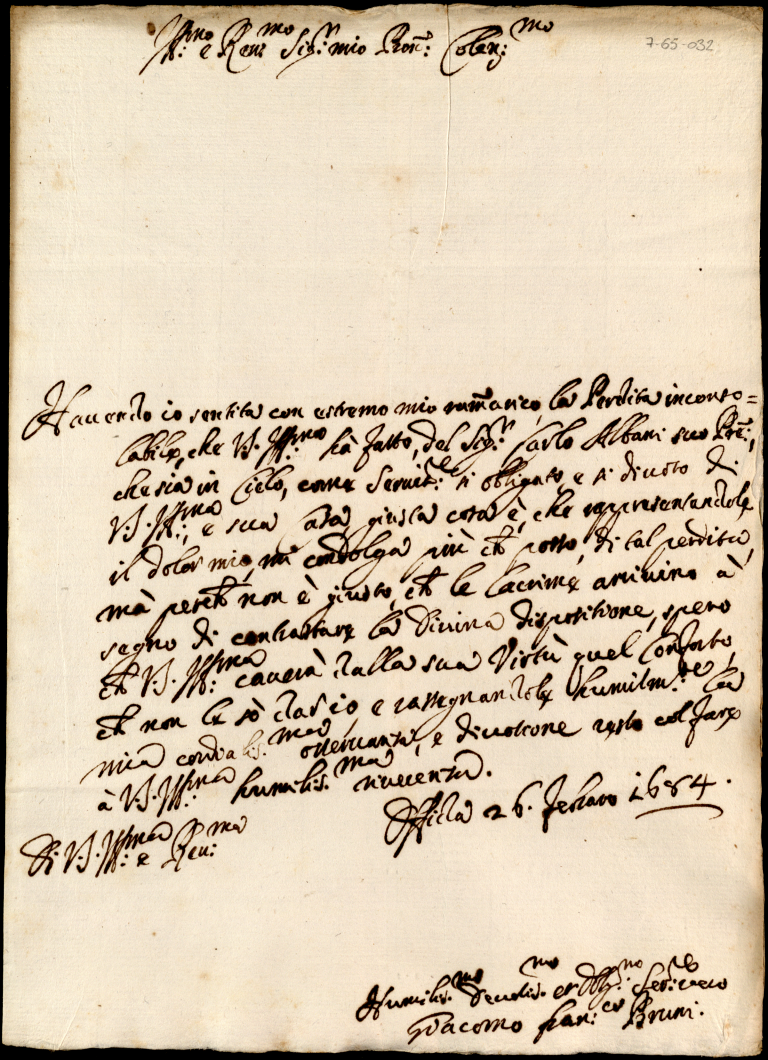 Ill:mo e Reu:mo Sig:r mio Pron: Colen:mo
7-65-032
Hauendo io sentita con estremo mio ramarico, la Perdita inconso=
labile, che V.S. Ill:ma hà fatto, del Sig:r Carlo Albani suo Pre:,
che sia in Cielo, come Seruit:re si obligato, e si diuoto di
V.S. Ill:ma, e sua Casa giusta cosa è, che rappresentandole
il dolor mio, mi condolga più che posso, di tal perdita,
mà perche non è giusto, che le lacrime arriuino à
segno di contrastare la Diuina dispositione, spero
che V.S. Ill:ma cauerà dalla sua Virtù quel Conforto,
che non le sò dar io e rassegnandole humilm:te la
mia cordialis:ma osseruanza, e diuotione resto col fare
à V.S. Ill:ma humilis:ma riuerenza.
Offida 26. Febraro 1684.
Di V.S. Ill:ma e Reu:ma
Humilis:mo Deuotis:mo et Obl:mo Ser:re uero
Giacomo Fran:co Bruni.